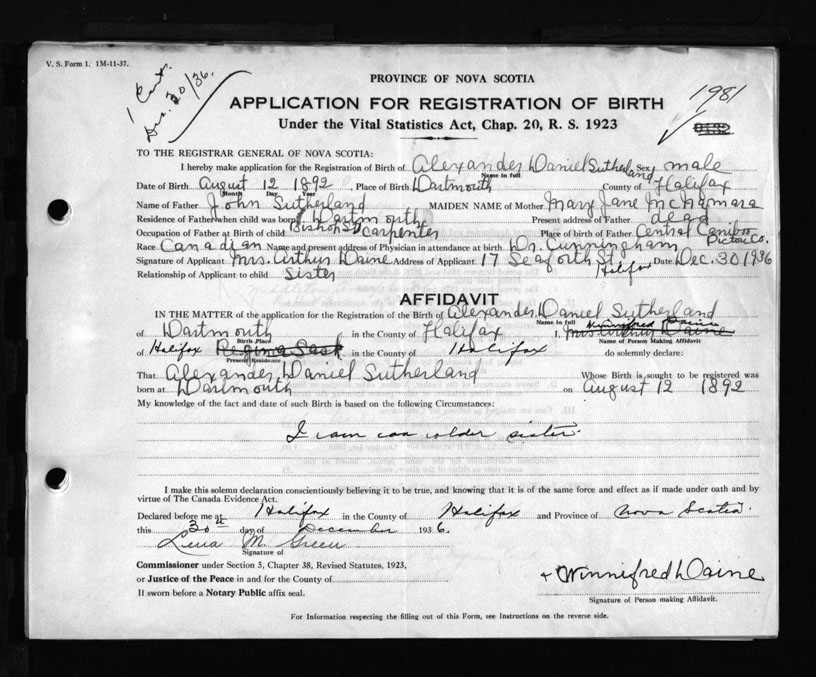 V. S. Form 1. 1M-11-37.
Dec. 30/36.
1981
PROVINCE OF NOVA SCOTIA
APPLICATION FOR REGISTRATION OF BIRTH
Under the Vital Statistics Act, Chap. 20, R. S. 1923
TO THE REGISTRAR GENERAL OF NOVA SCOTIA:
I hereby make application for the Registration of Birth of Alexander Daniel Sutherland Sex male
Name in full
Date of Birth August 12 1892, Place of Birth Dartmouth County of Halifax
Month Day Year
Name of Father John Sutherland MAIDEN NAME of Mother Mary Jane McNamara
Residence of Father when child was born Dartmouth Present address of Father dead
Occupation of Father at Birth of child Bishop St carpenter Place of birth of Father Central Caribou Pictou Co.
Race Canadian Name and present address of Physician in attendance at birth Dr. Cunningham
Signature of Applicant Mrs. Arthur Daine Address of Applicant 17 Seaforth St. Halifax Date Dec. 30 1936
Relationship of Applicant to child sister
AFFIDAVIT
IN THE MATTER of the application for the Registration of the Birth of Alexander Daniel Sutherland
Name in full
of Dartmouth in the County of Halifax I, Winnifred Daine Mrs. Arthur Daine
Birth Place Name of Person Making Affidavit
of Halifax Regina Sask in the County of Halifax do solemnly declare:
Present Residence
That Alexander Daniel Sutherland Whose Birth is sought to be registered was
born at Dartmouth on August 12 1892
My knowledge of the fact and date of such Birth is based on the following Circumstances:
I am an older sister.
I make this solemn declaration conscientiously believing it to be true, and knowing that it is of the same force and effect as if made under oath and by
virtue of The Canada Evidence Act.
Declared before me at Halifax in the County of Halifax and Province of Nova Scotia.
this 30th day of December 1936.
Lena M. Green
Signature of
Commissioner under Section 5, Chapter 38, Revised Statutes, 1923,
or Justice of the Peace in and for the County of
If sworn before a Notary Public affix seal.
Winnifred Daine
Signature of Person making Affidavit.
For Information respecting the filling out of this Form, see Instructions on the reverse side.